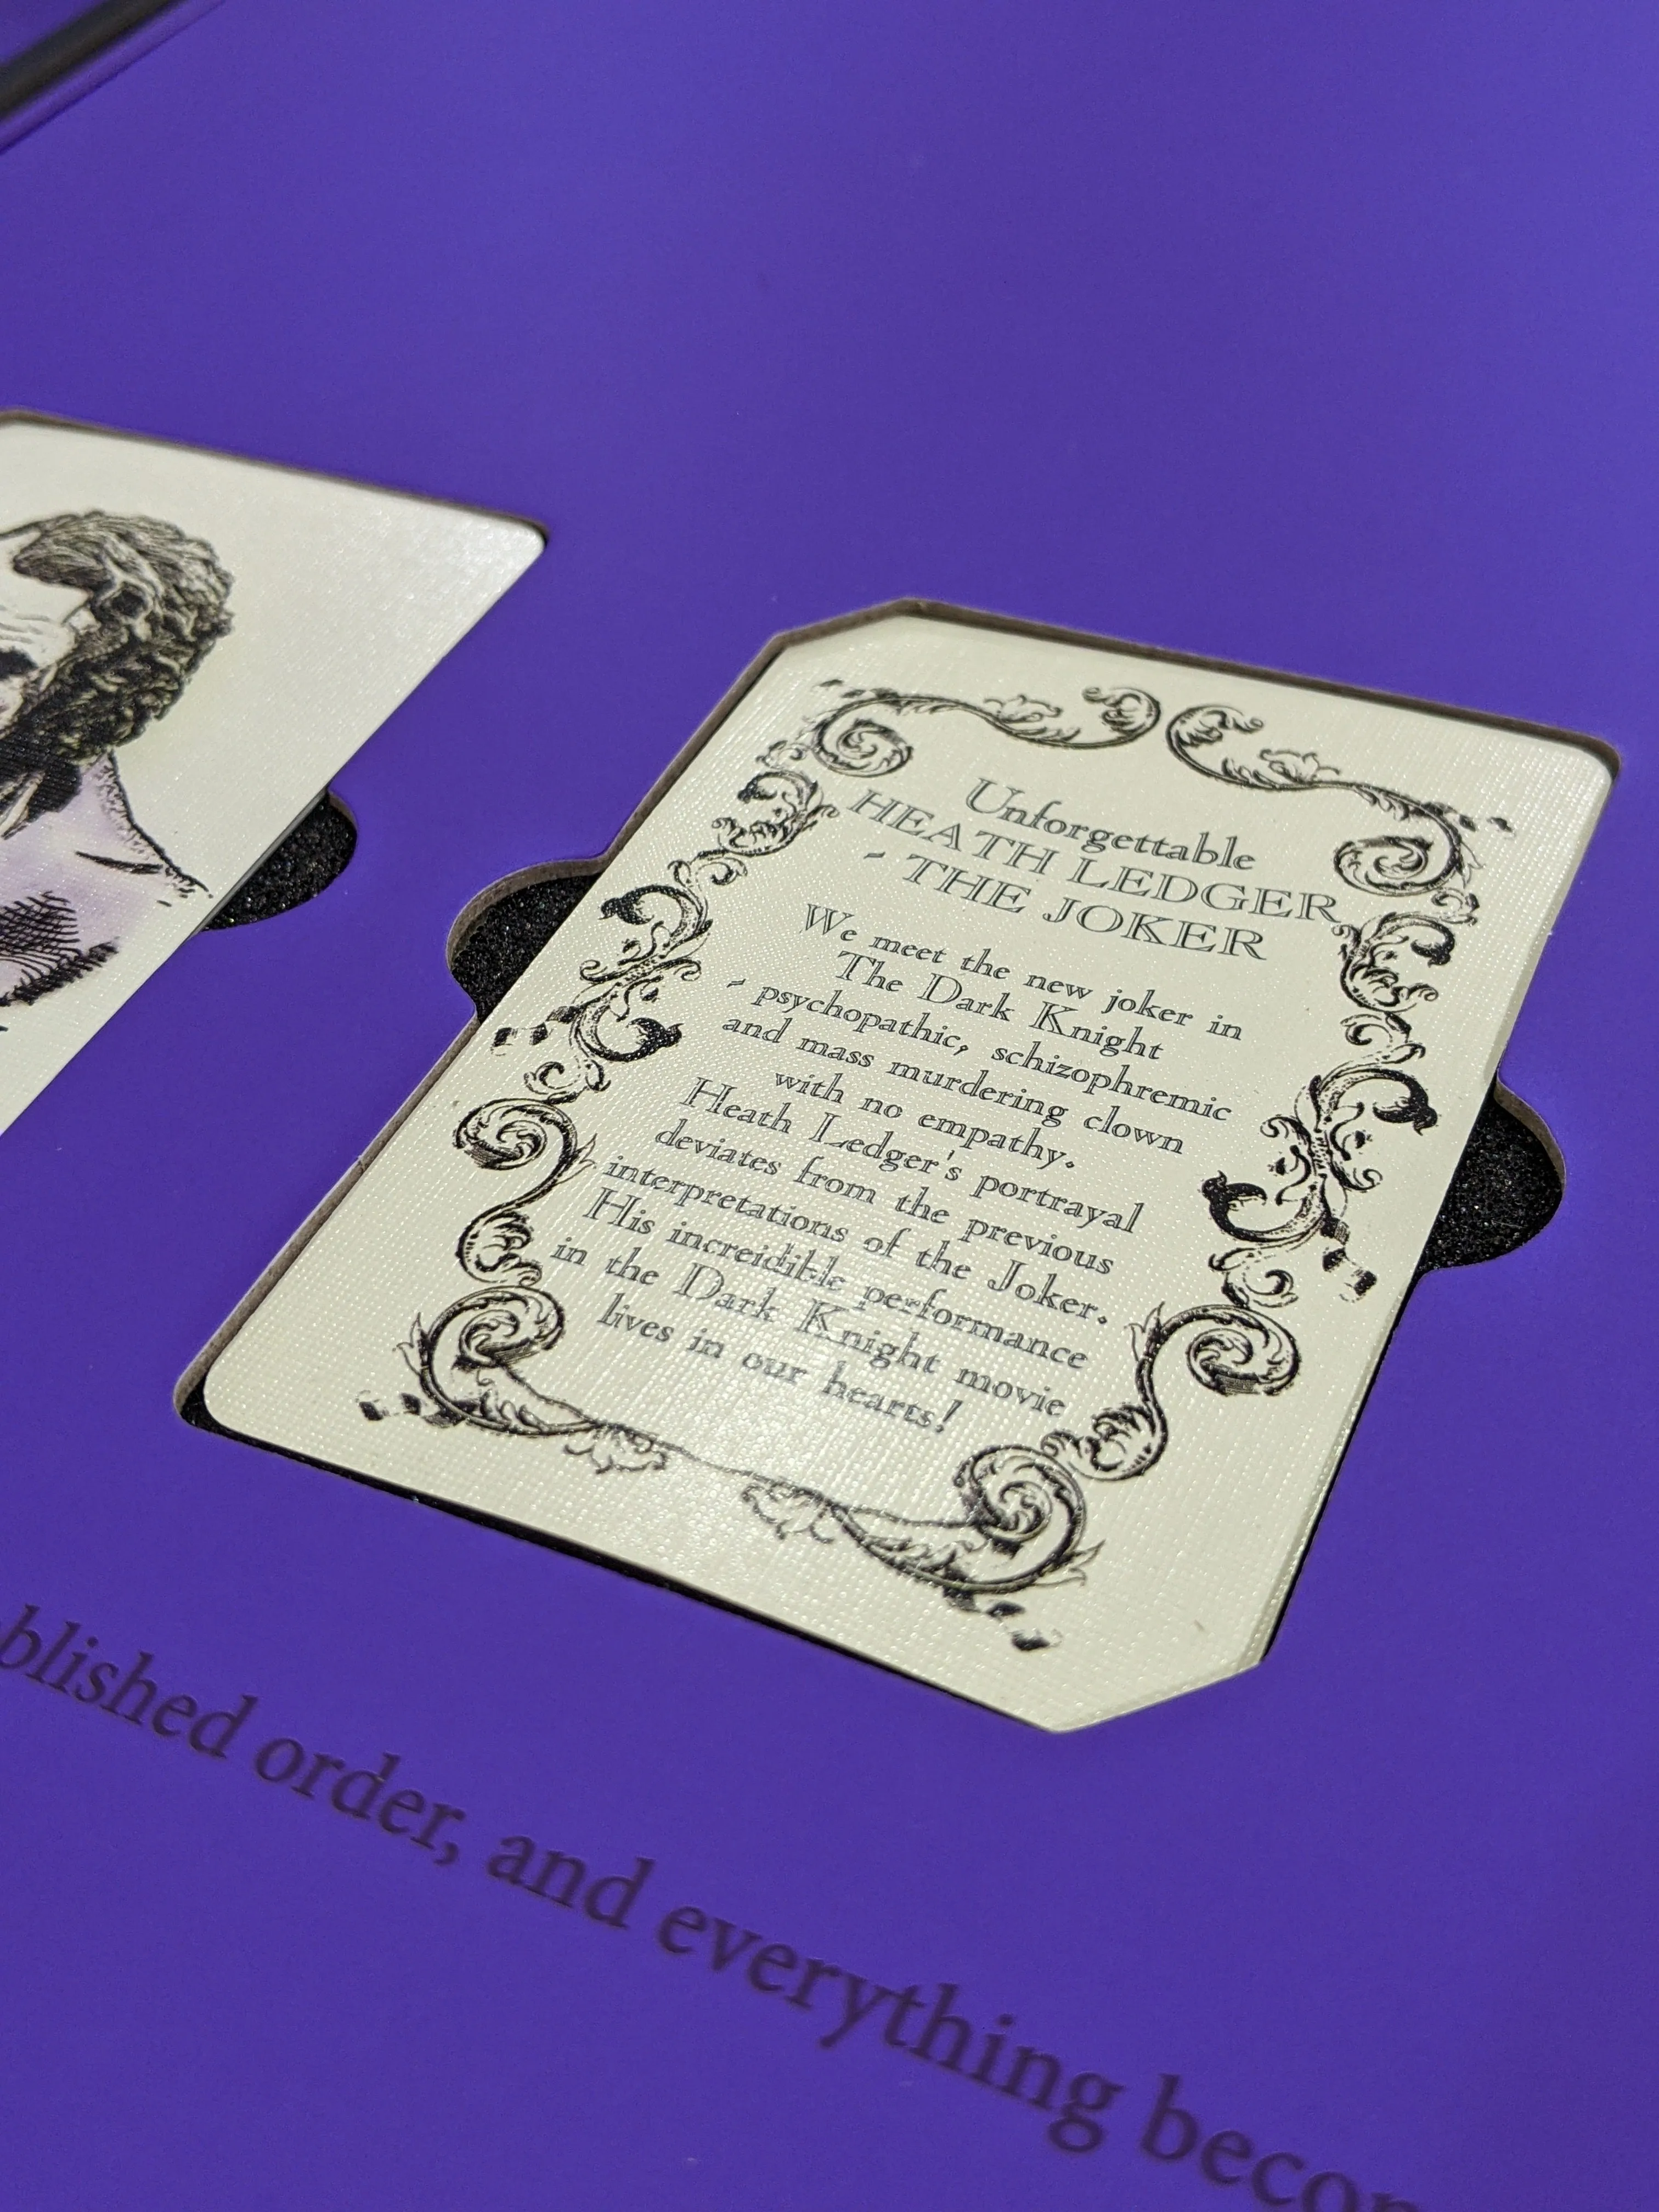 Unforgettable
HEATH LEDGER
- THE JOKER
We meet the new joker in
The Dark Knight
- psychopathic, schizophremic
and mass murdering clown
with no empathy.
Heath Ledger's portrayal
deviates from the previous
interpretations of the Joker.
His increidible performance
in the Dark Knight movie
lives in our hearts!
blished order, and everything becom